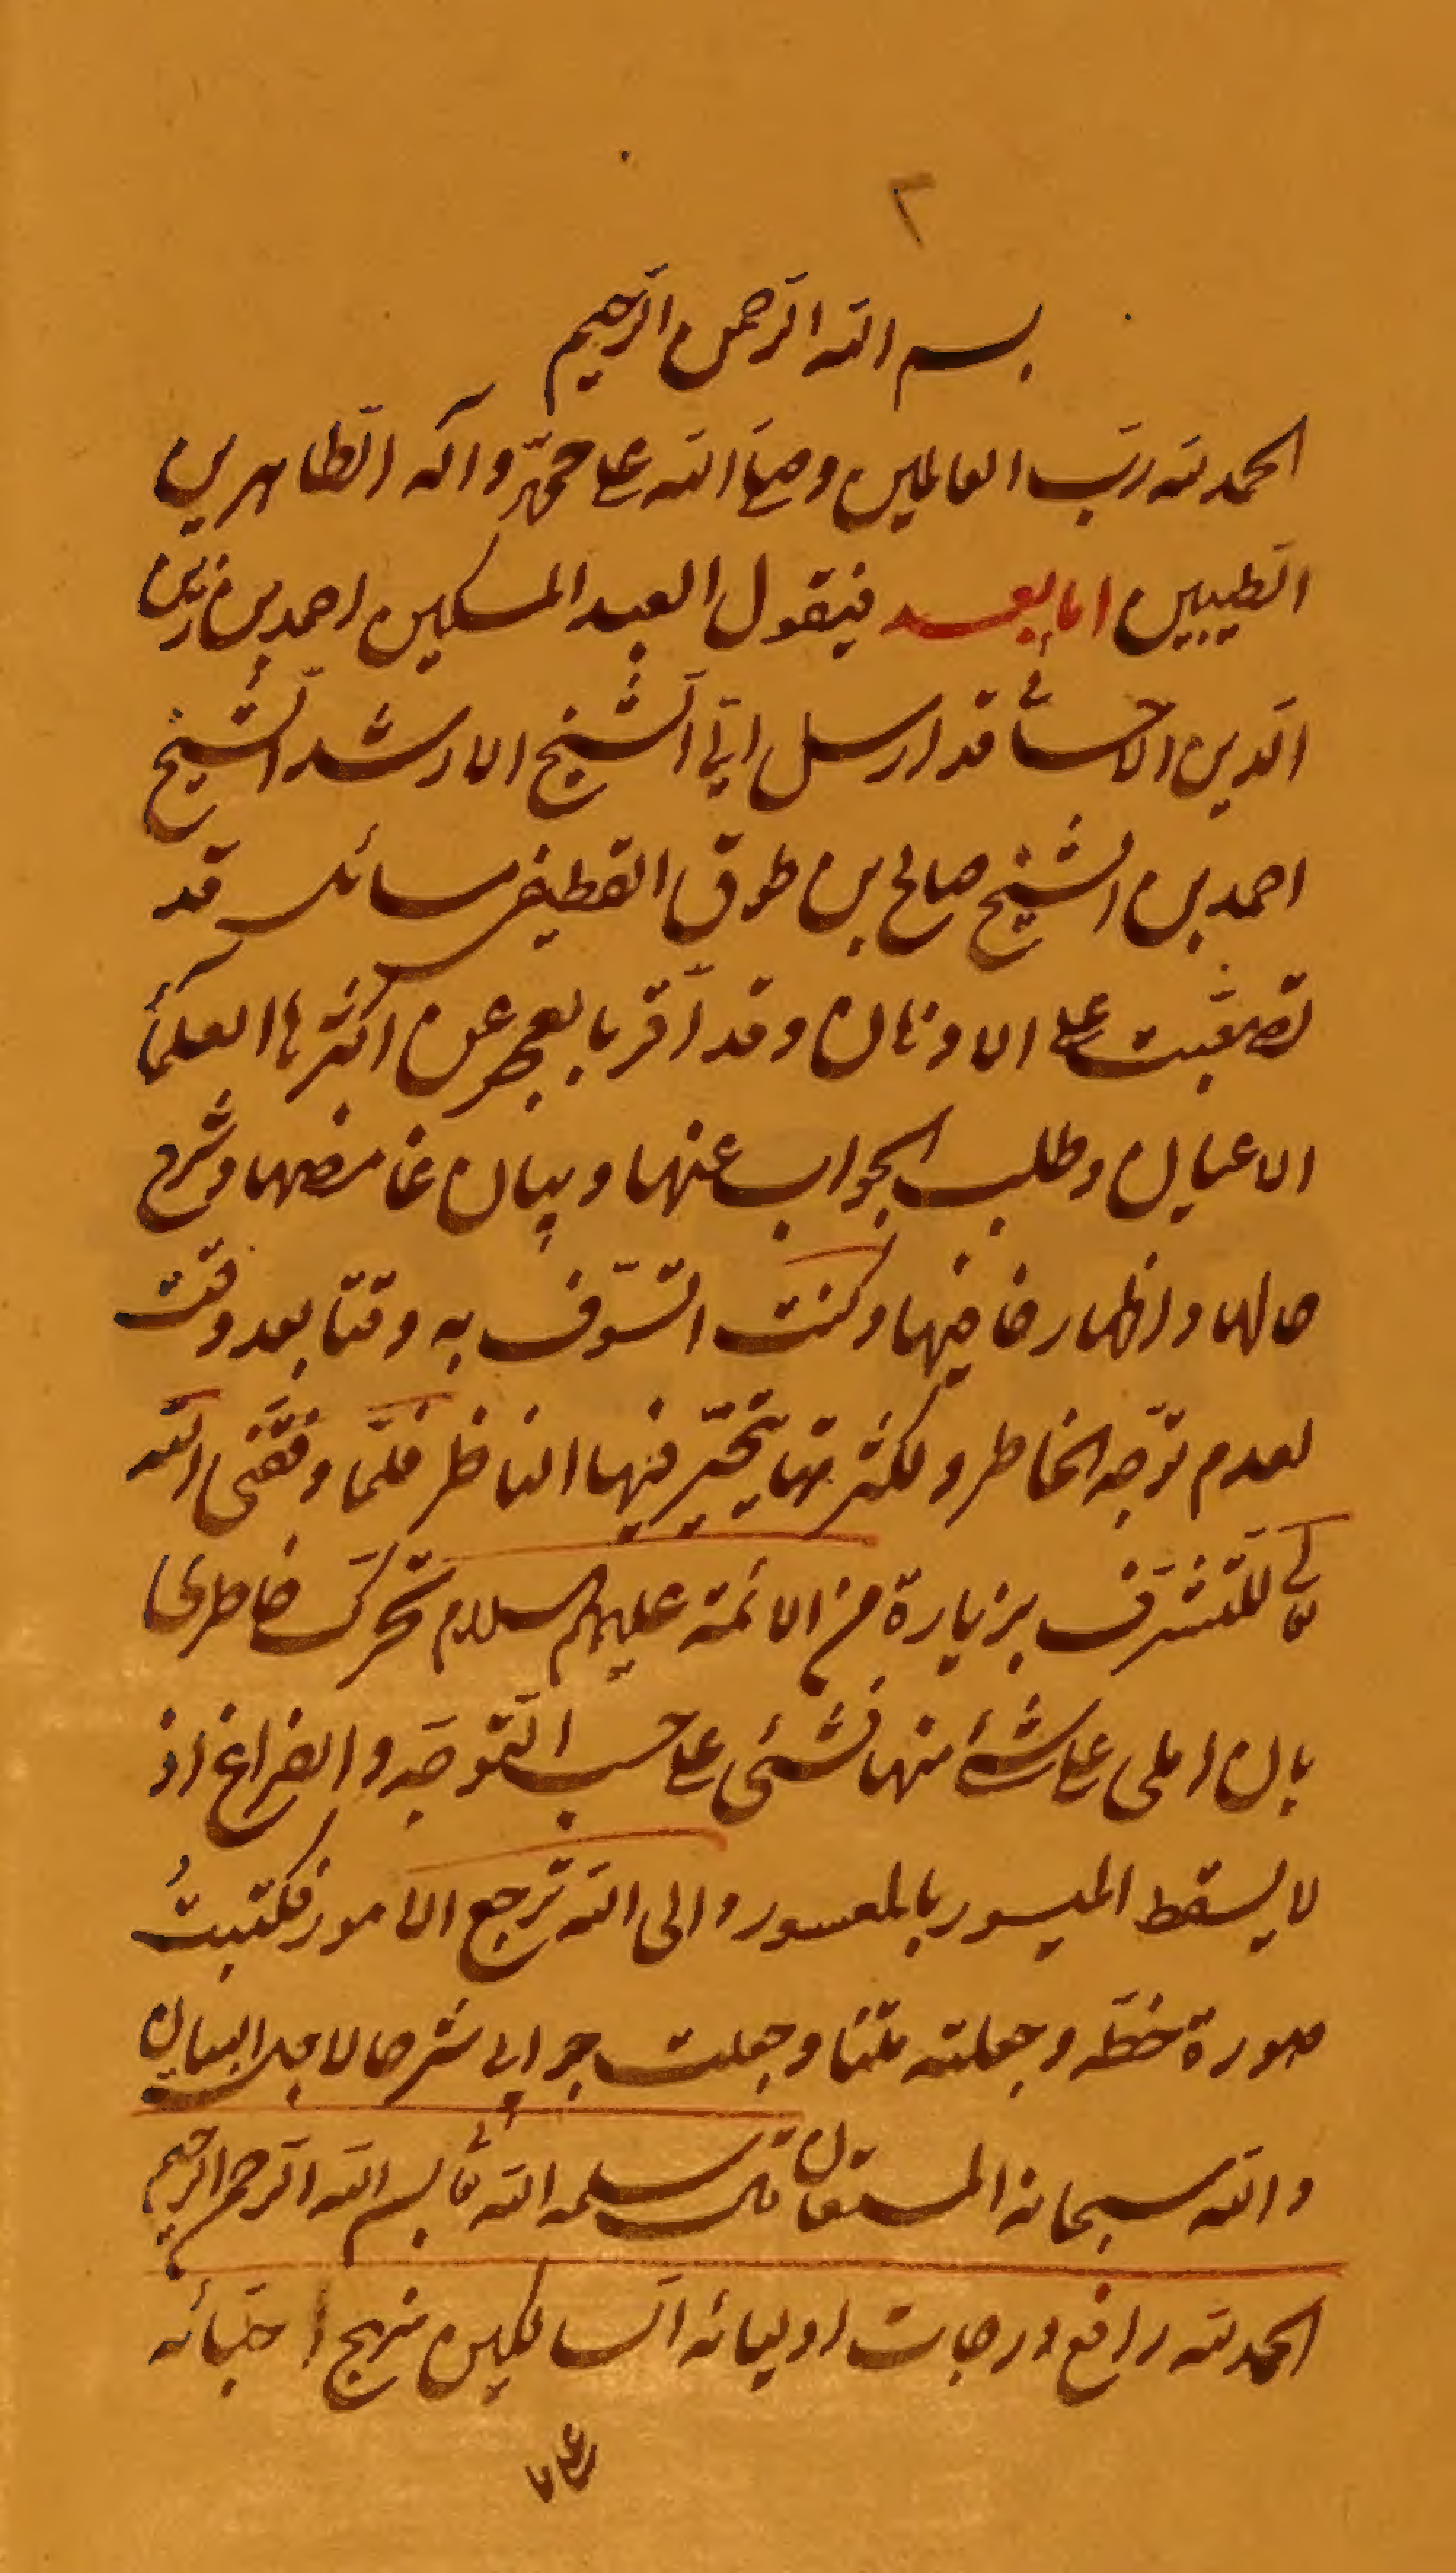 ٢
بسم الله الرحمن الرحيم
الحمد لله رب العالمين وصلى الله على محمد وآله الطاهرين
الطيبين اما بعد فيقول العبد المسكين احمد بن زين
الدين الاحسائي قد ارسل اليّ الشيخ الارشد الشيخ
احمد بن الشيخ صالح بن طوق القطيفي مسائل قد
تصعّبت على الاذهان وقد أقر بالعجز عن اكثرها العلماء
الاعيان وطلب الجواب عنها وبيان غامضها وشرح
حالها واظهار خافيها وكنت اتسوّف به وقتا بعد وقت
لعدم توجّه الخاطر ولكثرتها يتحيّر فيها الناظر فلمّا وفقني الله
تعالى للتشرف بزيارة من الائمة عليهم السلام تحرك خاطري
بان املى على شئ منها فشئى على حسب التوجّه والفراغ اذ
لا يسقط الميسور بالمعسور والى الله ترجع الامور فكتبتُ
صورة خطّه وجعلته متنا وجعلت جوابي شرحا لاجل البيان
والله سبحانه المستعان قال سلمه الله تعالى بسم الله الرحمن الرحيم
الحمد لله رافع درجات اوليائه السالكين منهج احبّائه